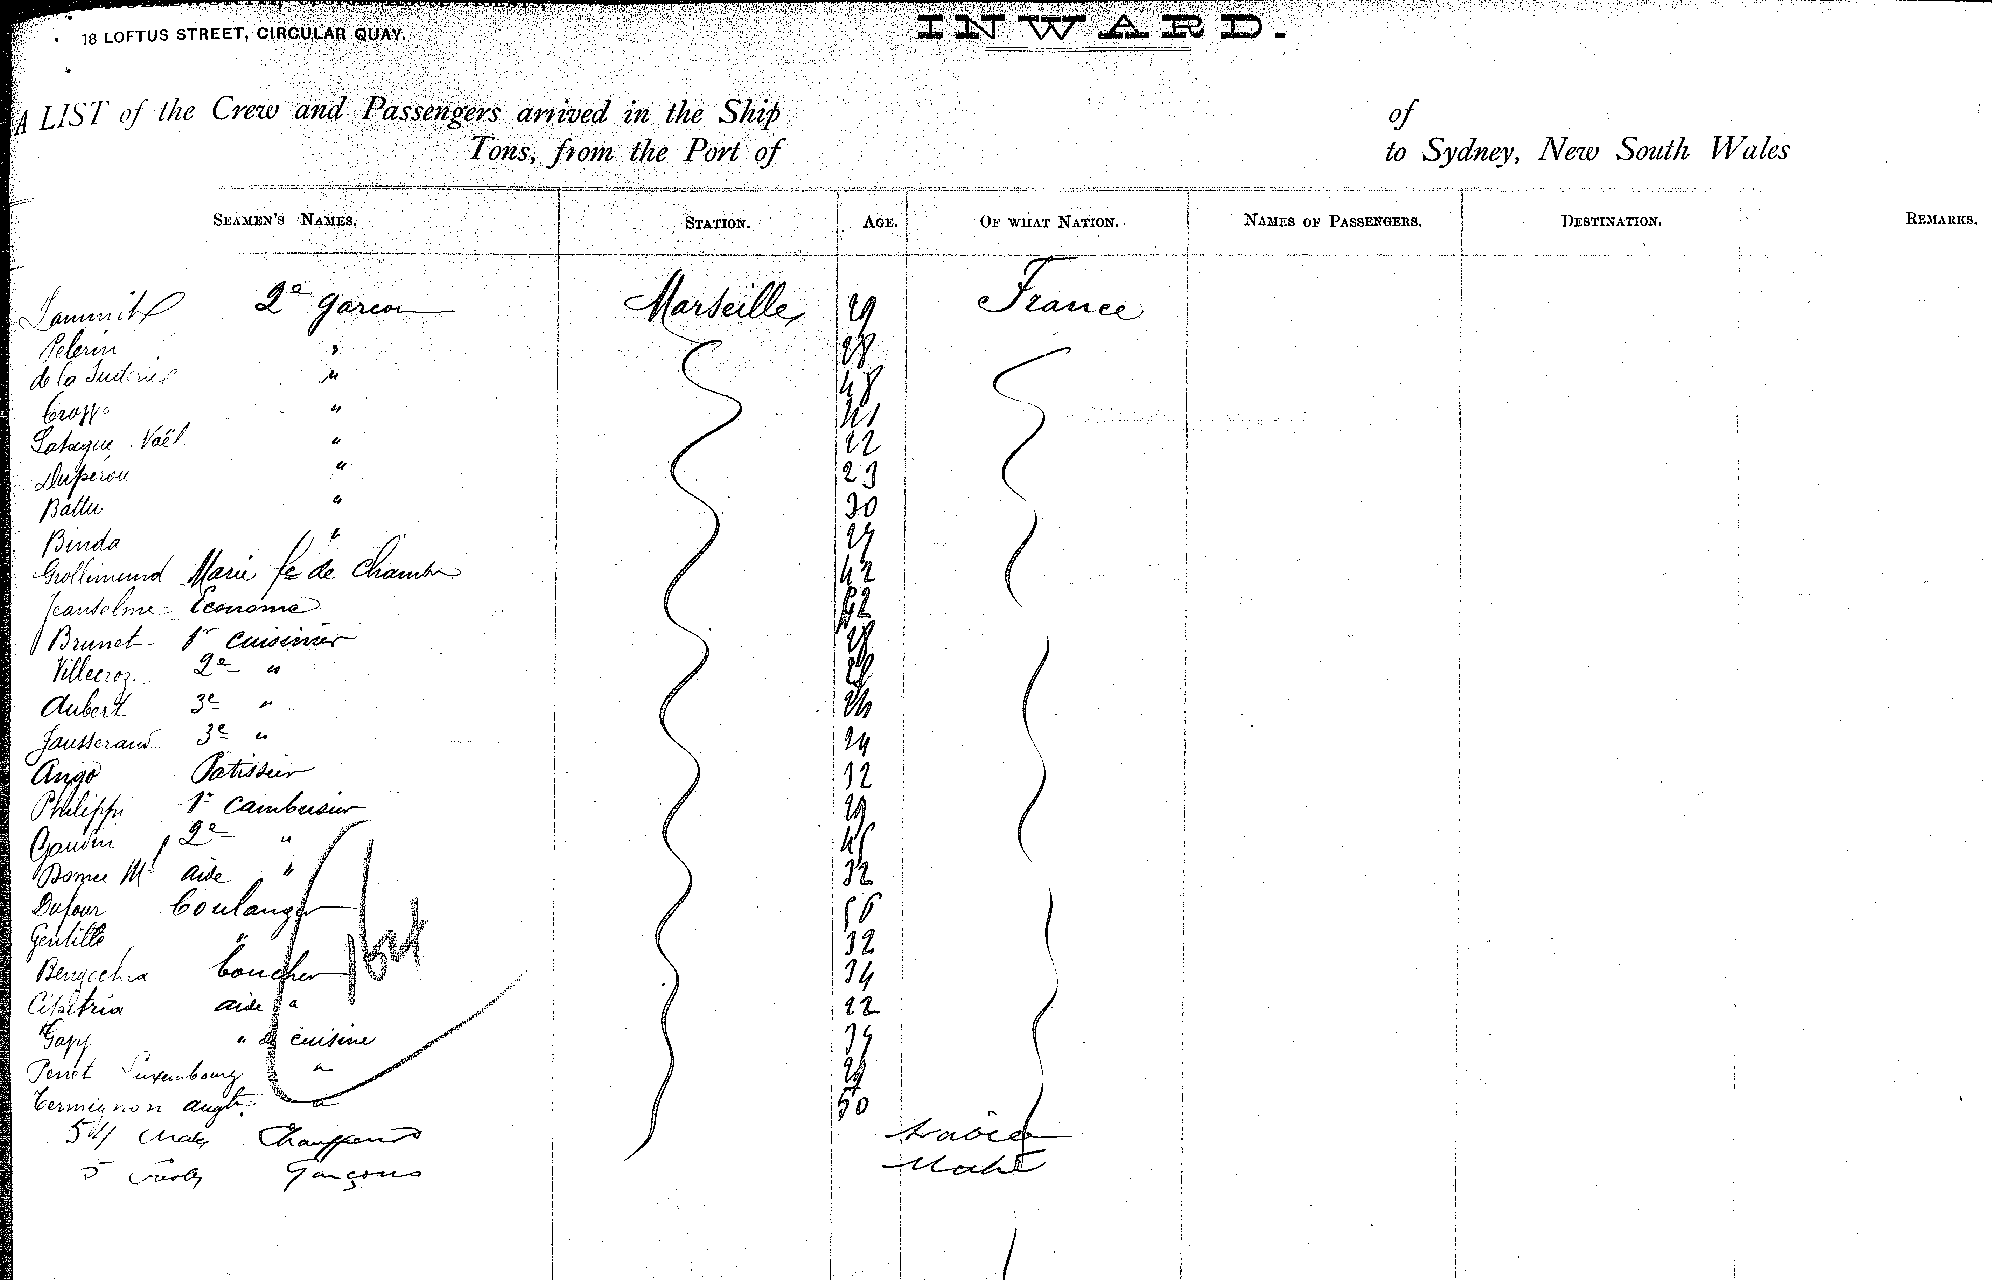 18 LOFTUS STREET, CIRCULAR QUAY.
INWARD.
A LIST of the Crew and Passengers arrived in the Ship of
Tons, from the Port of to Sydney, New South Wales
SEAMEN'S NAMES. STATION. AGE. OF WHAT NATION. NAMES OF PASSENGERS. DESTINATION. REMARKS.
2e garcon Marseille 29 France
Pelerin " 28
de la " 48
"
Latague Noël " 22
Duperou " 23
Battu " 30
Binda "
Grollimund Marie fe de Chambre 42
Jeanselme Econome
Brunet 1r cuisinier
Villecroz 2e "
Aubert 3e "
Jausserand 3e " 24
Ango Patissier 32
Philippi 1r Cambusier 29
Gaudin 2e " 45
aide " 32
Dufour boulanger 56
Gentille " 32
boucher 34
aide " 22
Gapp " de cuisine
Perret Luxembourg " 29
Termignon augte. " 50
54 Chauffeurs Arabia
5 Garçons
164